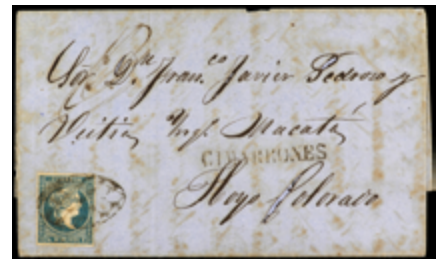 Sor. Dn. Franco. Javier Pedroso y
Veitia Ingo. Macatá
CIMARRONES
Hoyo Colorado